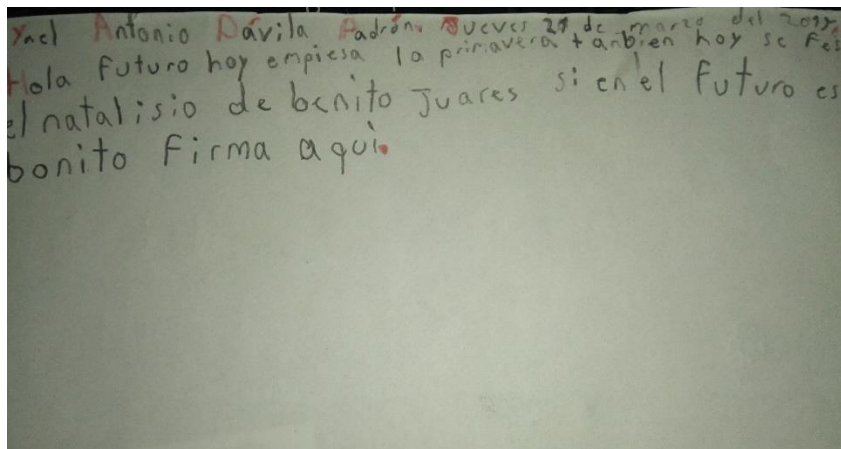 Yael Antonio Dávila Padrón. Jueves 21 de marzo del 2019.
Hola futuro hoy empiesa la primavera tanbien hoy se fes
el natalisio de benito juares si en el futuro es
bonito firma aqui.